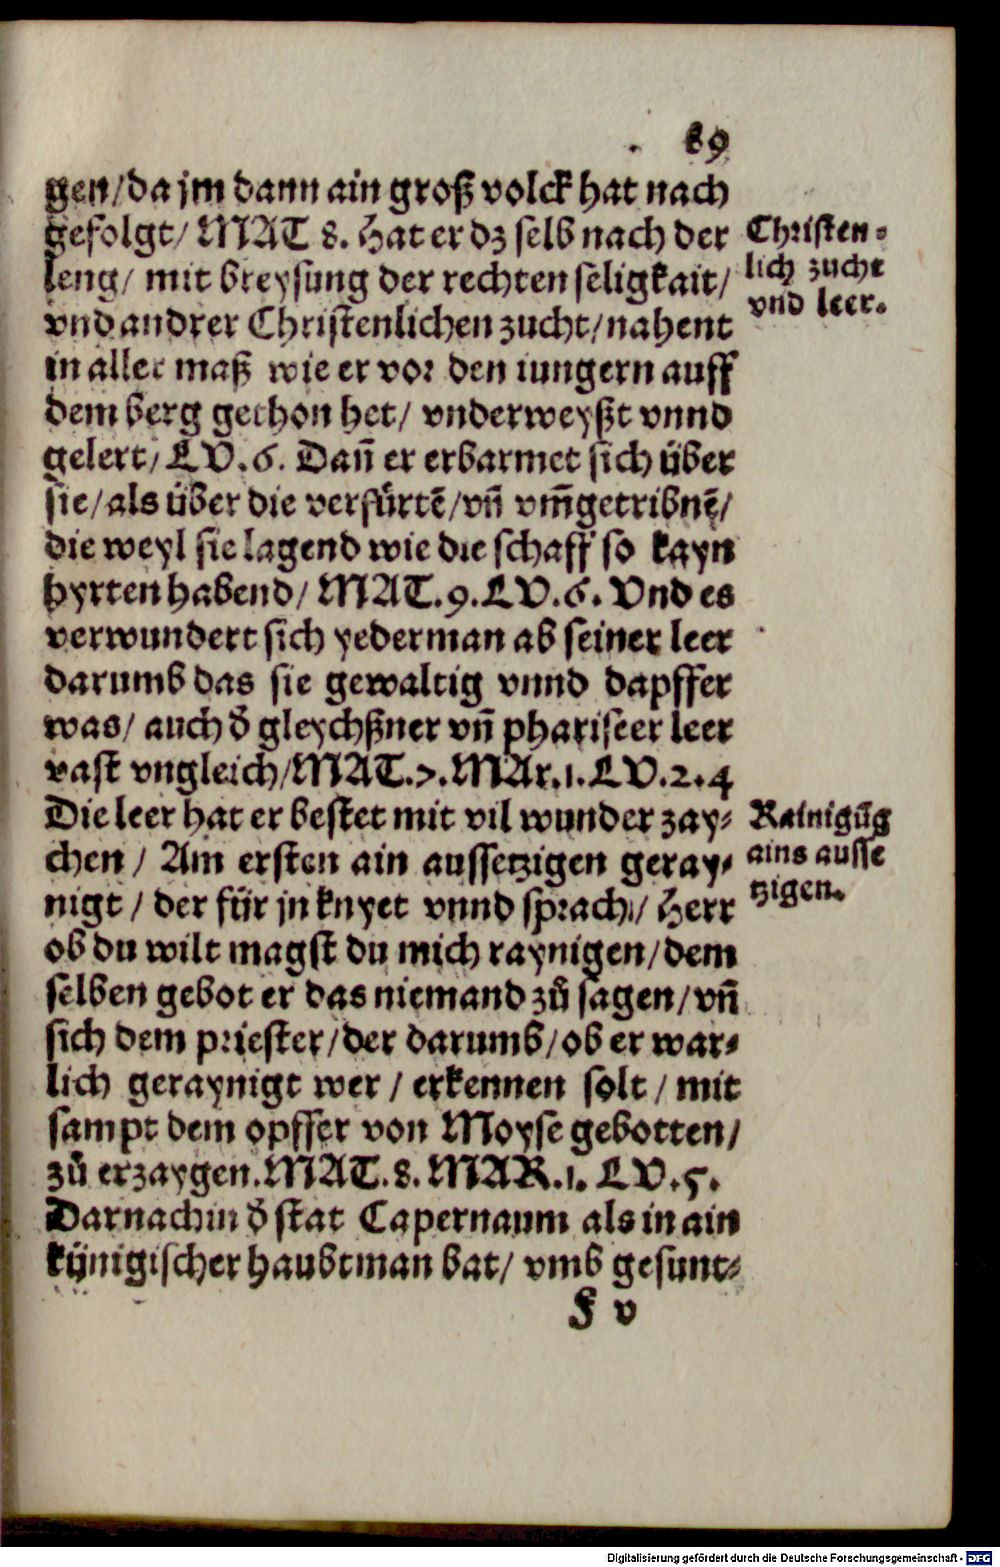 89
gen/da jm dann ain groß volck hat nach
gefolgt/ MAT 8. Hat er dz selb nach der
leng/ mit breysung der rechten seligkait/
vnd andrer Christenlichen zucht/nahent
in aller maß wie er vor den iungern auff
dem berg gethon het/ vnderweyßt vnnd
gelert/ LV.6. Dañ er erbarmet sich über
sie/als über die verfürtẽ/vñ vm̃getribnẽ/
die weyl sie lagend wie die schaff so kayn
hyrten habend/ MAT.9.LV.6. Vnd es
verwundert sich yederman ab seiner leer
darumb das sie gewaltig vnnd dapffer
was/ auch ð gleychßner vñ phariseer leer
vast vngleich/MAT.7.MAr.1.LV.2.4
Die leer hat er bestet mit vil wunder zay⸗
chen / Am ersten ain aussetzigen geray⸗
nigt / der für jn knyet vnnd sprach/ Herr
ob du wilt magst du mich raynigen/dem
selben gebot er das niemand zů sagen/vñ
sich dem priester/der darumb/ob er war⸗
lich geraynigt wer / erkennen solt / mit
sampt dem opffer von Moyse gebotten/
zů erzaygen.MAT.8.MAR.1.LV.5.
Darnach in ð stat Capernaum als in ain
künigischer haubtman bat/ vmb gesunt⸗
F v
Christen⸗
lich zucht
vnd leer.
Rainigũg
ains ausse
tzigen.
Digitalisierung gefördert durch die Deutsche Forschungsgemeinschaft - DFG